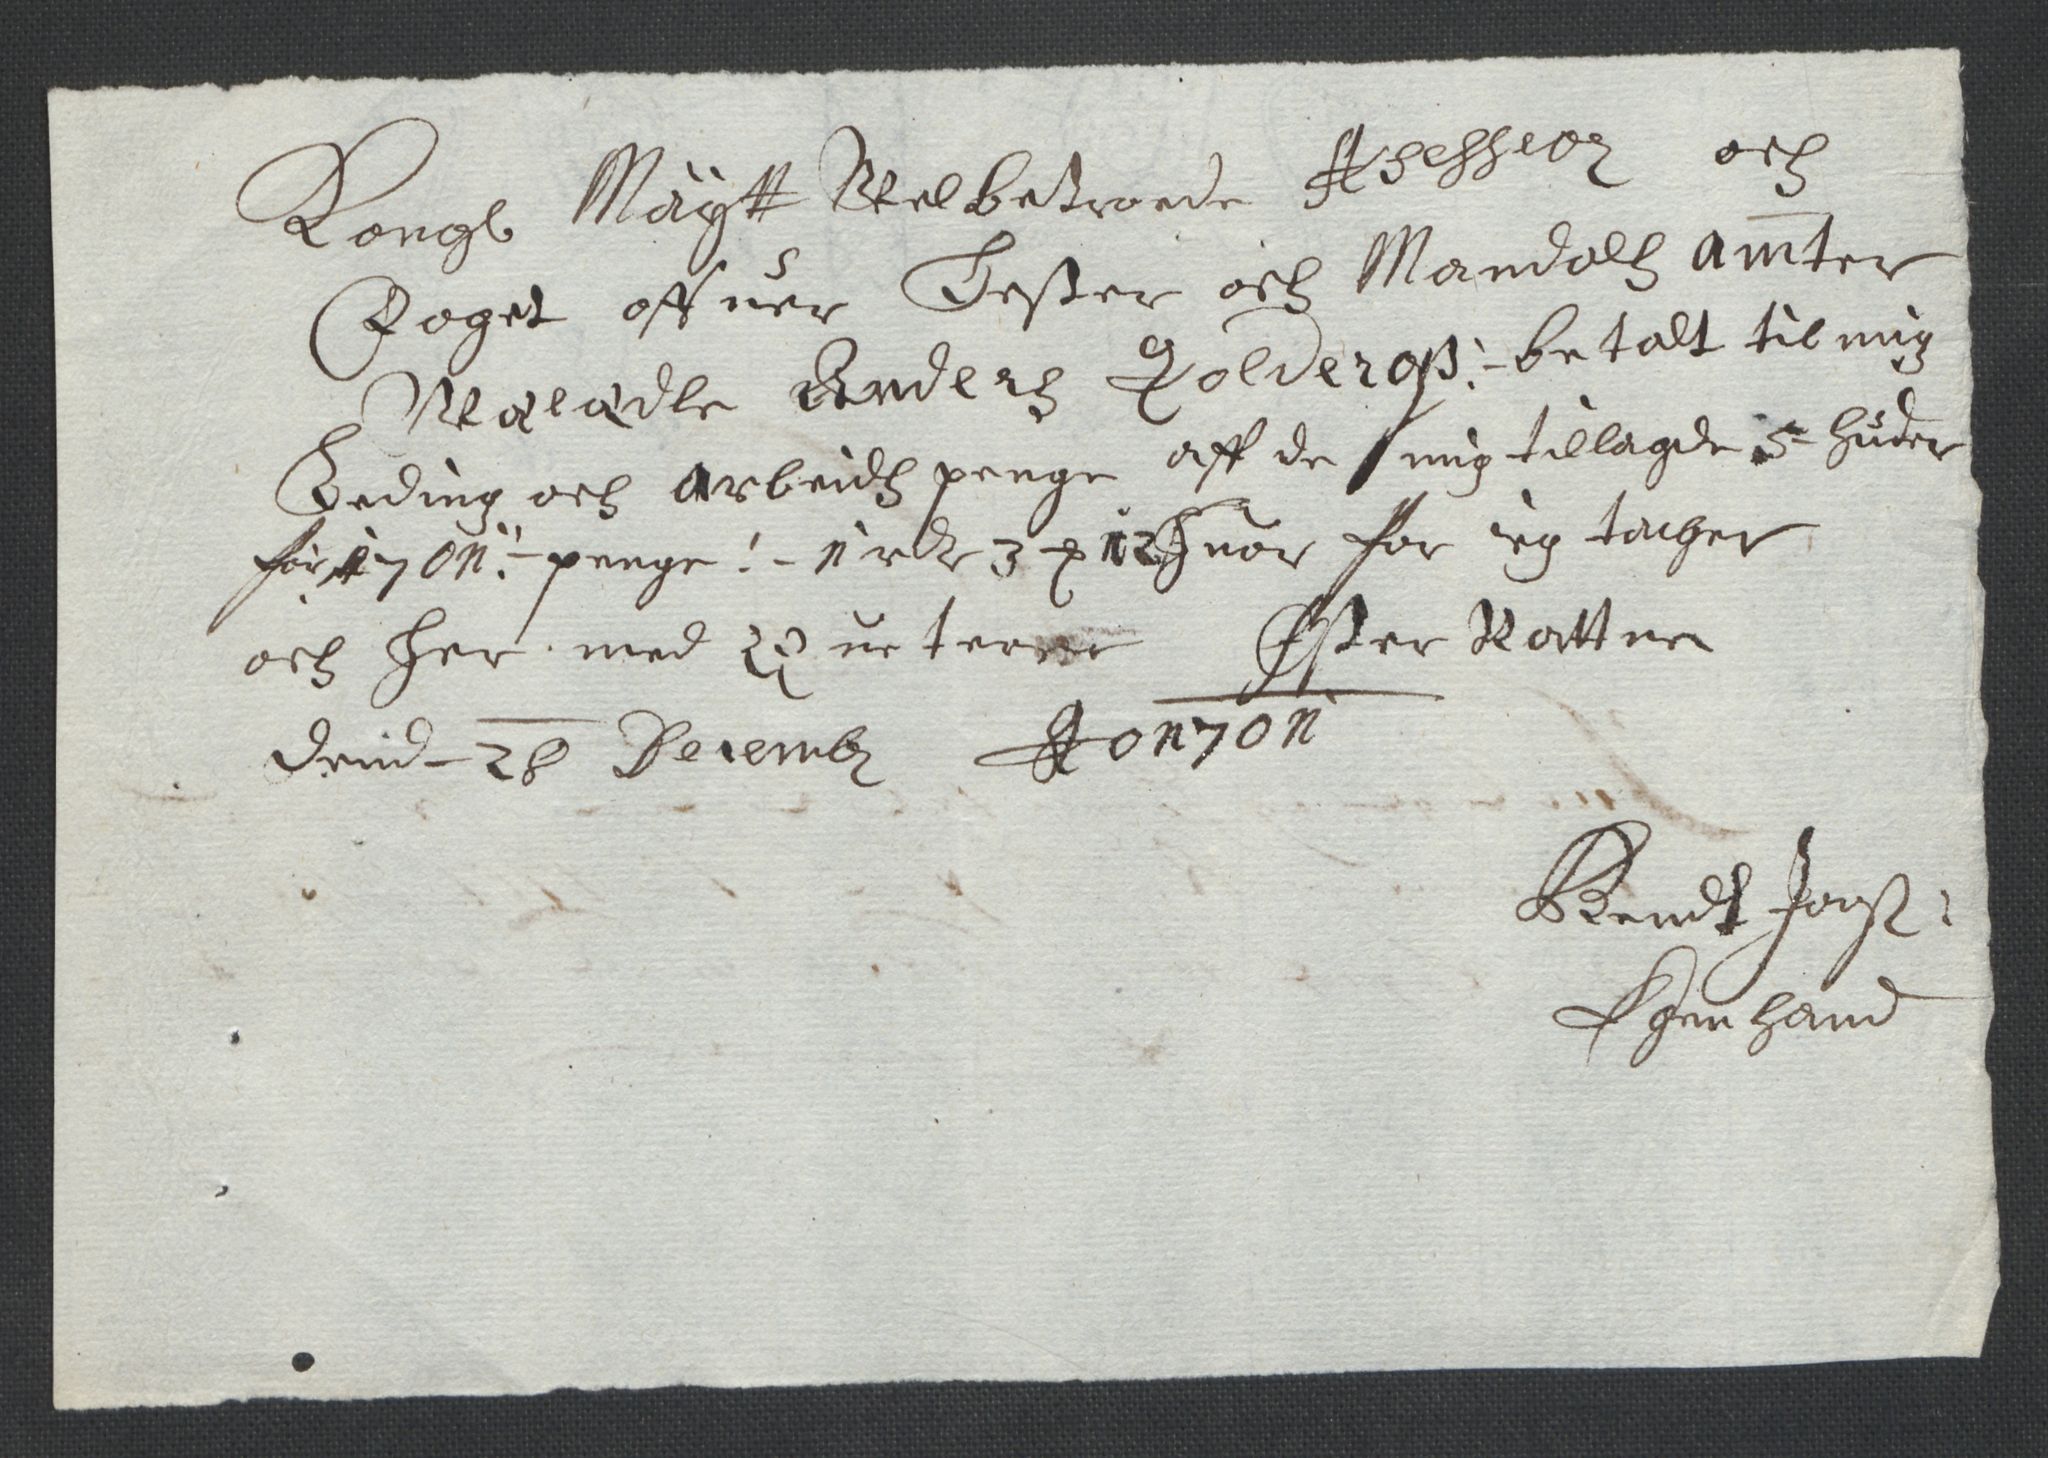 Kongl Mäytt Velbetroede Assessor och
Foget offuer Lester och Mandals amter
Væladle Anders Golderoß:- betalt til mig
Leding och arbeidtz penge aff de mig tillagde 5- huder
for 1701:- penge:- 1 rdr 3 12 huor for ieg tacher
och her med quiterer Øster Vattne
Dend- 28 Decemb Ao 1701
Bendt Jons:
Egen haand